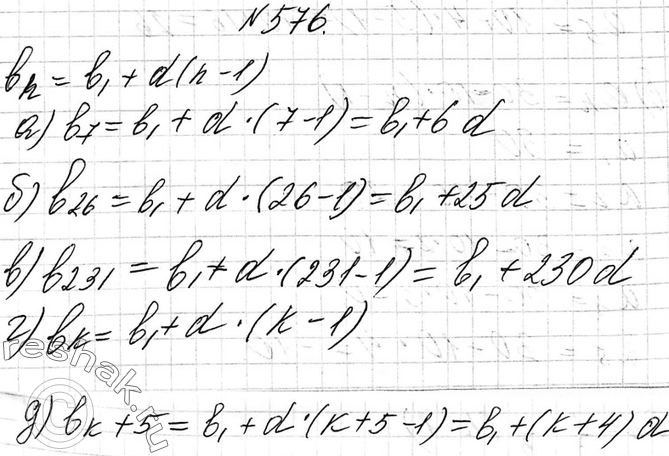 №576.
bn = b1 + d(n-1)
а) b7 = b1 + d·(7-1) = b1 + 6d
б) b26 = b1 + d·(26-1) = b1 + 25d
в) b231 = b1 + d·(231-1) = b1 + 230d
г) bk = b1 + d·(k-1)
д) bk+5 = b1 + d·(k+5-1) = b1 + (k+4)d
©reshak.ru